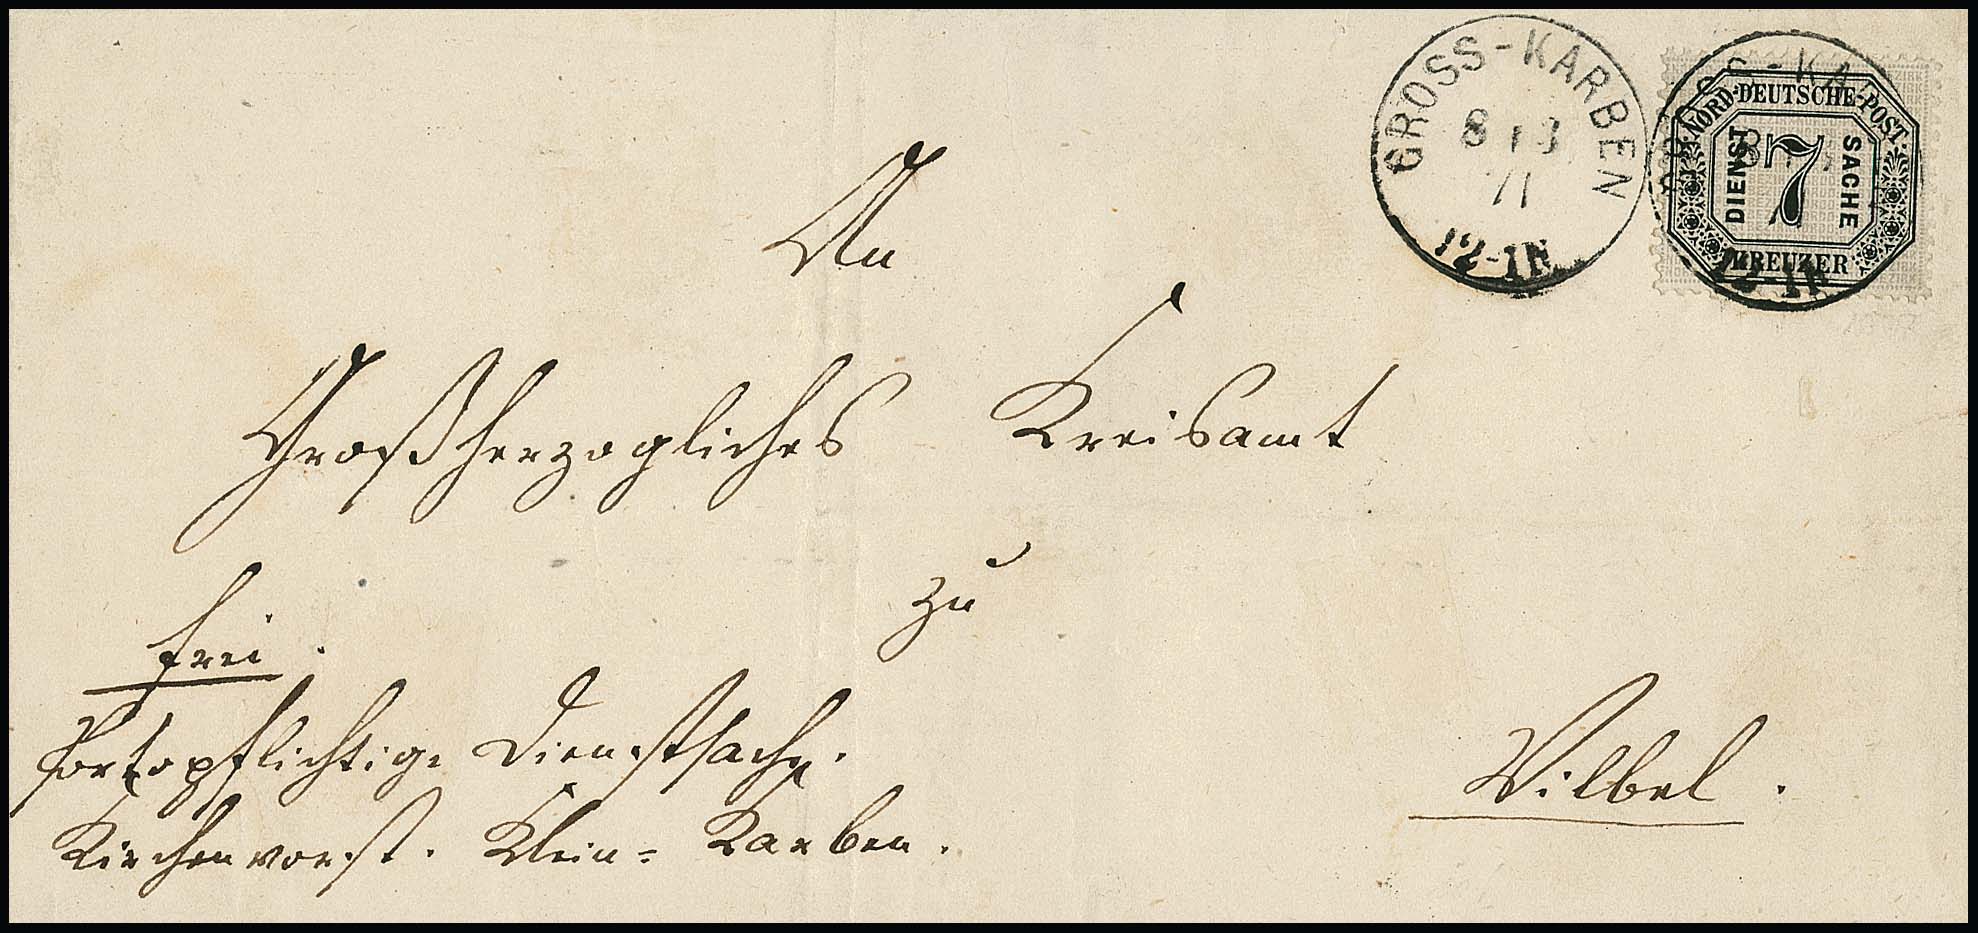 GROSS-KARBEN
8 1 3
71
12-1N
NORD-DEUTSCHE-POST
DIENST 7 SACHE
KREUZER
An
Großherzogliches Kreisamt
zu
Vilbel.
frei.
Portopflichtige Dienstsache.
Kirchenvorst. Klein-Karben.